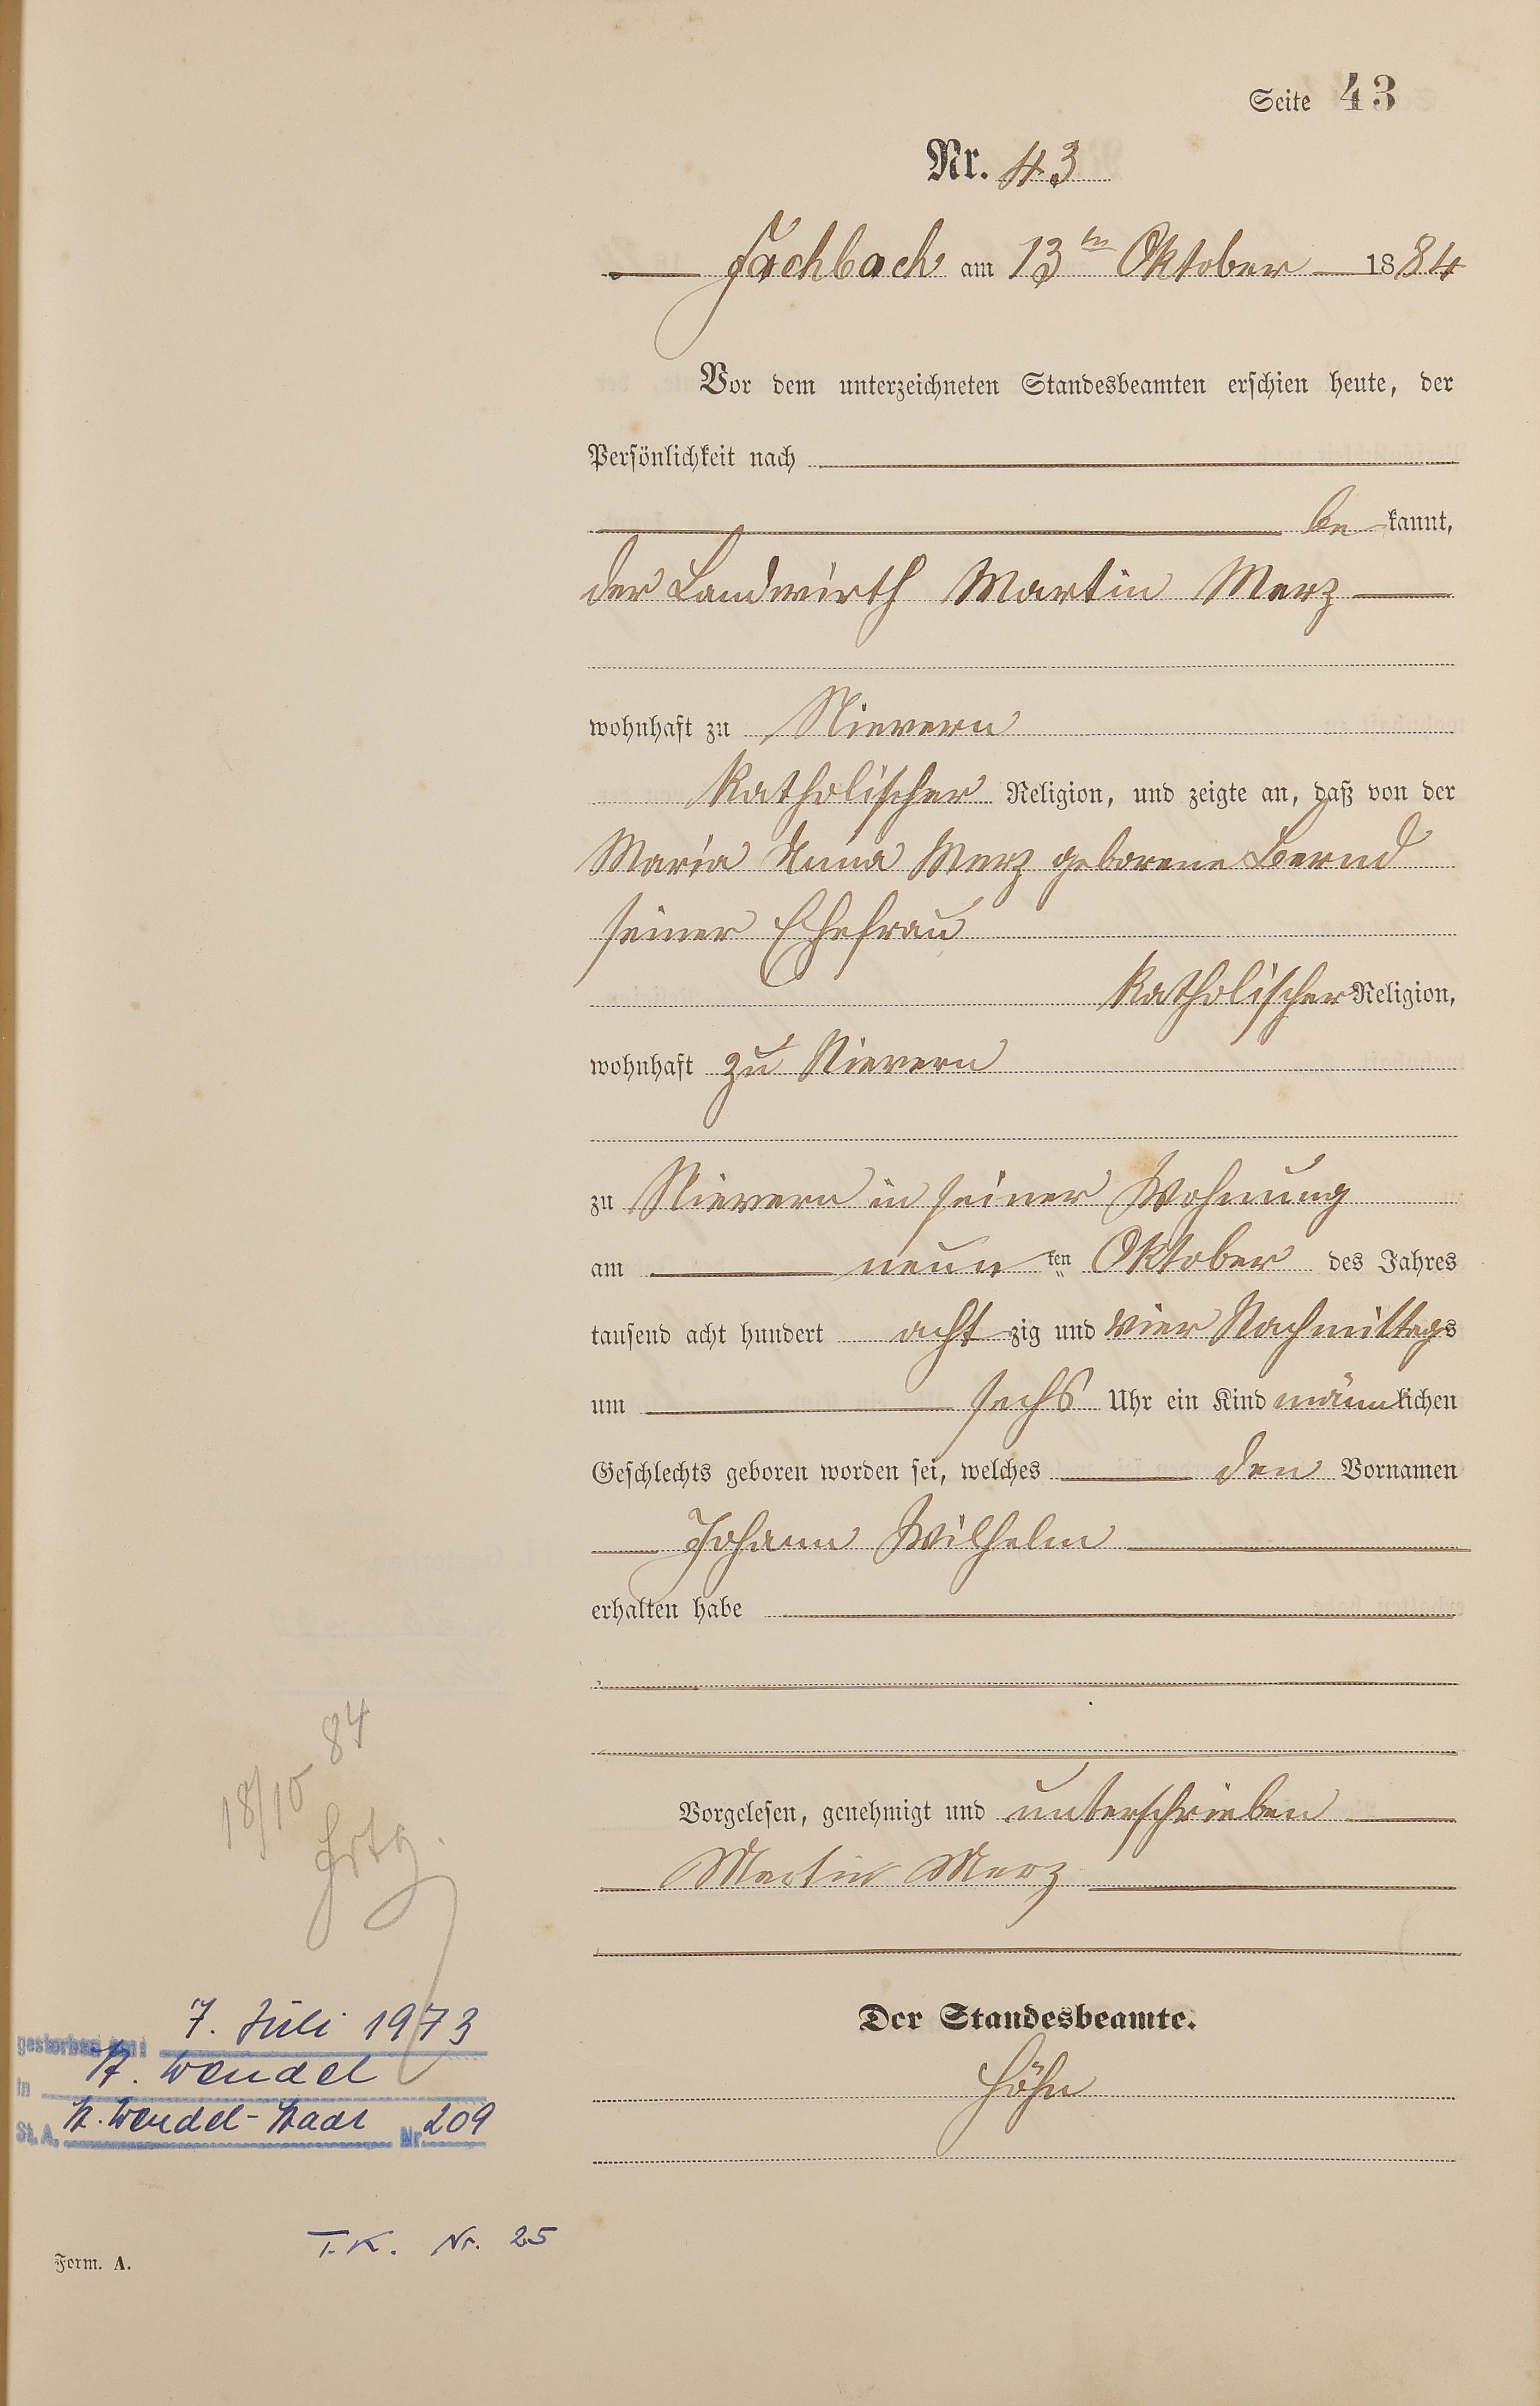 Seite 43
Nr. 43
Fachbach am 13ten Oktober 1884
Vor dem unterzeichneten Standesbeamten erschien heute, der
Persönlichkeit nach
be kannt,
der Landwirth Martin Merz
wohnhaft zu Nievern
katholischer Religion, und zeigte an, daß von der
Maria Anna Merz geborene Bernd
seiner Ehefrau
katholischer Religion,
wohnhaft zu Nievern
zu Nievern in seiner Wohnung
am neun ten Oktober des Jahres
tausend acht hundert acht zig und vier Nachmittags
um sechs Uhr ein Kind männlichen
Geschlechts geboren worden sei, welches den Vornamen
Johann Wilhelm
erhalten habe
Vorgelesen, genehmigt und unterschrieben
Martin Merz
Der Standesbeamte.
Höhn
18/10 84
gestorben am: 7. Juli 1973
in St. Wendel
St. A. St. Wendel-Stadt Nr. 209
T.K. Nr. 25
Form. A.